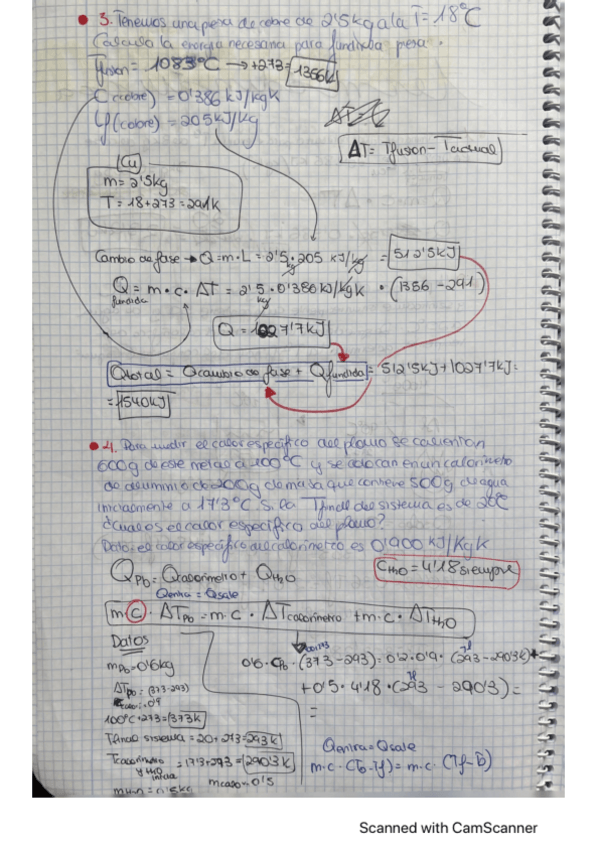 3. Tenemos una pesa de cobre de 2'5kg a la T=18°C
Calcula la energía necesaria para fundir la pesa.
Tfusion = 1083°C → +273= 1356K
C(cobre) = 0'386 kJ/kgK
Lf(cobre) = 205 kJ/kg
ΔT = Tfusion - Tactual
Cu
m = 2'5kg
T = 18+273 = 291K
Cambio de fase → Q=m·L = 2'5 kg · 205 kJ/kg = 512'5KJ
Q fundida = m·c·ΔT = 2'5 kg · 0'386 kJ/kgK · (1356-291)
Q = 1027'7 kJ
Qtotal = Qcambio de fase + Qfundida = 512'5kJ + 1027'7kJ =
= 1540kJ
4. Para medir el calor específico del plomo se calientan
600g de ese metal a 100°C y se colocan en un calorímetro
de aluminio de 200g de masa que contiene 500g de agua
inicialmente a 17'3°C. Si la Tfinal del sistema es de 20°C
¿cual es el calor específico del plomo?
Dato: el calor específico del calorímetro es 0'900 KJ/KgK
QPb = Qcalorímetro + QH2O
CH2O = 4'18 siempre
Qentra = Qsale
m·C·ΔTPb = m·c·ΔTcalorímetro + m·c·ΔTH2O
Datos
mPb = 0'6kg
0'6·CPb·(373-293) = 0'2·0'9·(293-290'3K)+
+0'5·4'18·(293-290'3) =
=
ΔTPb = (373-293)
100°C+273 = 373K
Tfinal sistema = 20+273 = 293K
Tcalorímetro y H2O inicial = 17'3+273 = 290'3K
Qentra = Qsale
m·c·(To-Tf) = m·c·(Tf-To)
Scanned with CamScanner